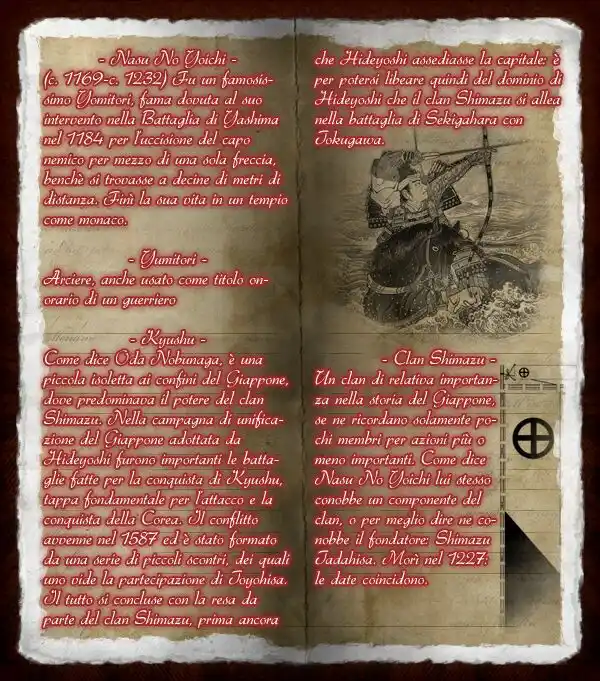 - Nasu No Yoichi -
(c. 1169-c. 1232) Fu un famosis-
simo Yomitori, fama dovuta al suo
intervento nella Battaglia di Yashima
nel 1184 per l'uccisione del capo
nemico per mezzo di una sola freccia,
benchè si trovasse a decine di metri di
distanza. Finì la sua vita in un tempio
come monaco.
- Yumitori -
Arciere, anche usato come titolo on-
orario di un guerriero
- Kyushu -
Come dice Oda Nobunaga, è una
piccola isoletta ai confini del Giappone,
dove predominava il potere del clan
Shimazu. Nella campagna di unifica-
zione del Giappone adottata da
Hideyoshi furono importanti le batta-
glie fatte per la conquista di Kyushu,
tappa fondamentale per l'attacco e la
conquista della Corea. Il conflitto
avvenne nel 1587 ed è stato formato
da una serie di piccoli scontri, dei quali
uno vide la partecipazione di Toyohisa.
Il tutto si concluse con la resa da
parte del clan Shimazu, prima ancora
che Hideyoshi assediasse la capitale: è
per potersi libeare quindi del dominio di
Hideyoshi che il clan Shimazu si allea
nella battaglia di Sekigahara con
Tokugawa.
- Clan Shimazu -
Un clan di relativa importan-
za nella storia del Giappone,
se ne ricordano solamente po-
chi membri per azioni più o
meno importanti. Come dice
Nasu No Yoichi lui stesso
conobbe un componente del
clan, o per meglio dire ne co-
nobbe il fondatore: Shimazu
Tadahisa. Morì nel 1227;
le date coincidono.